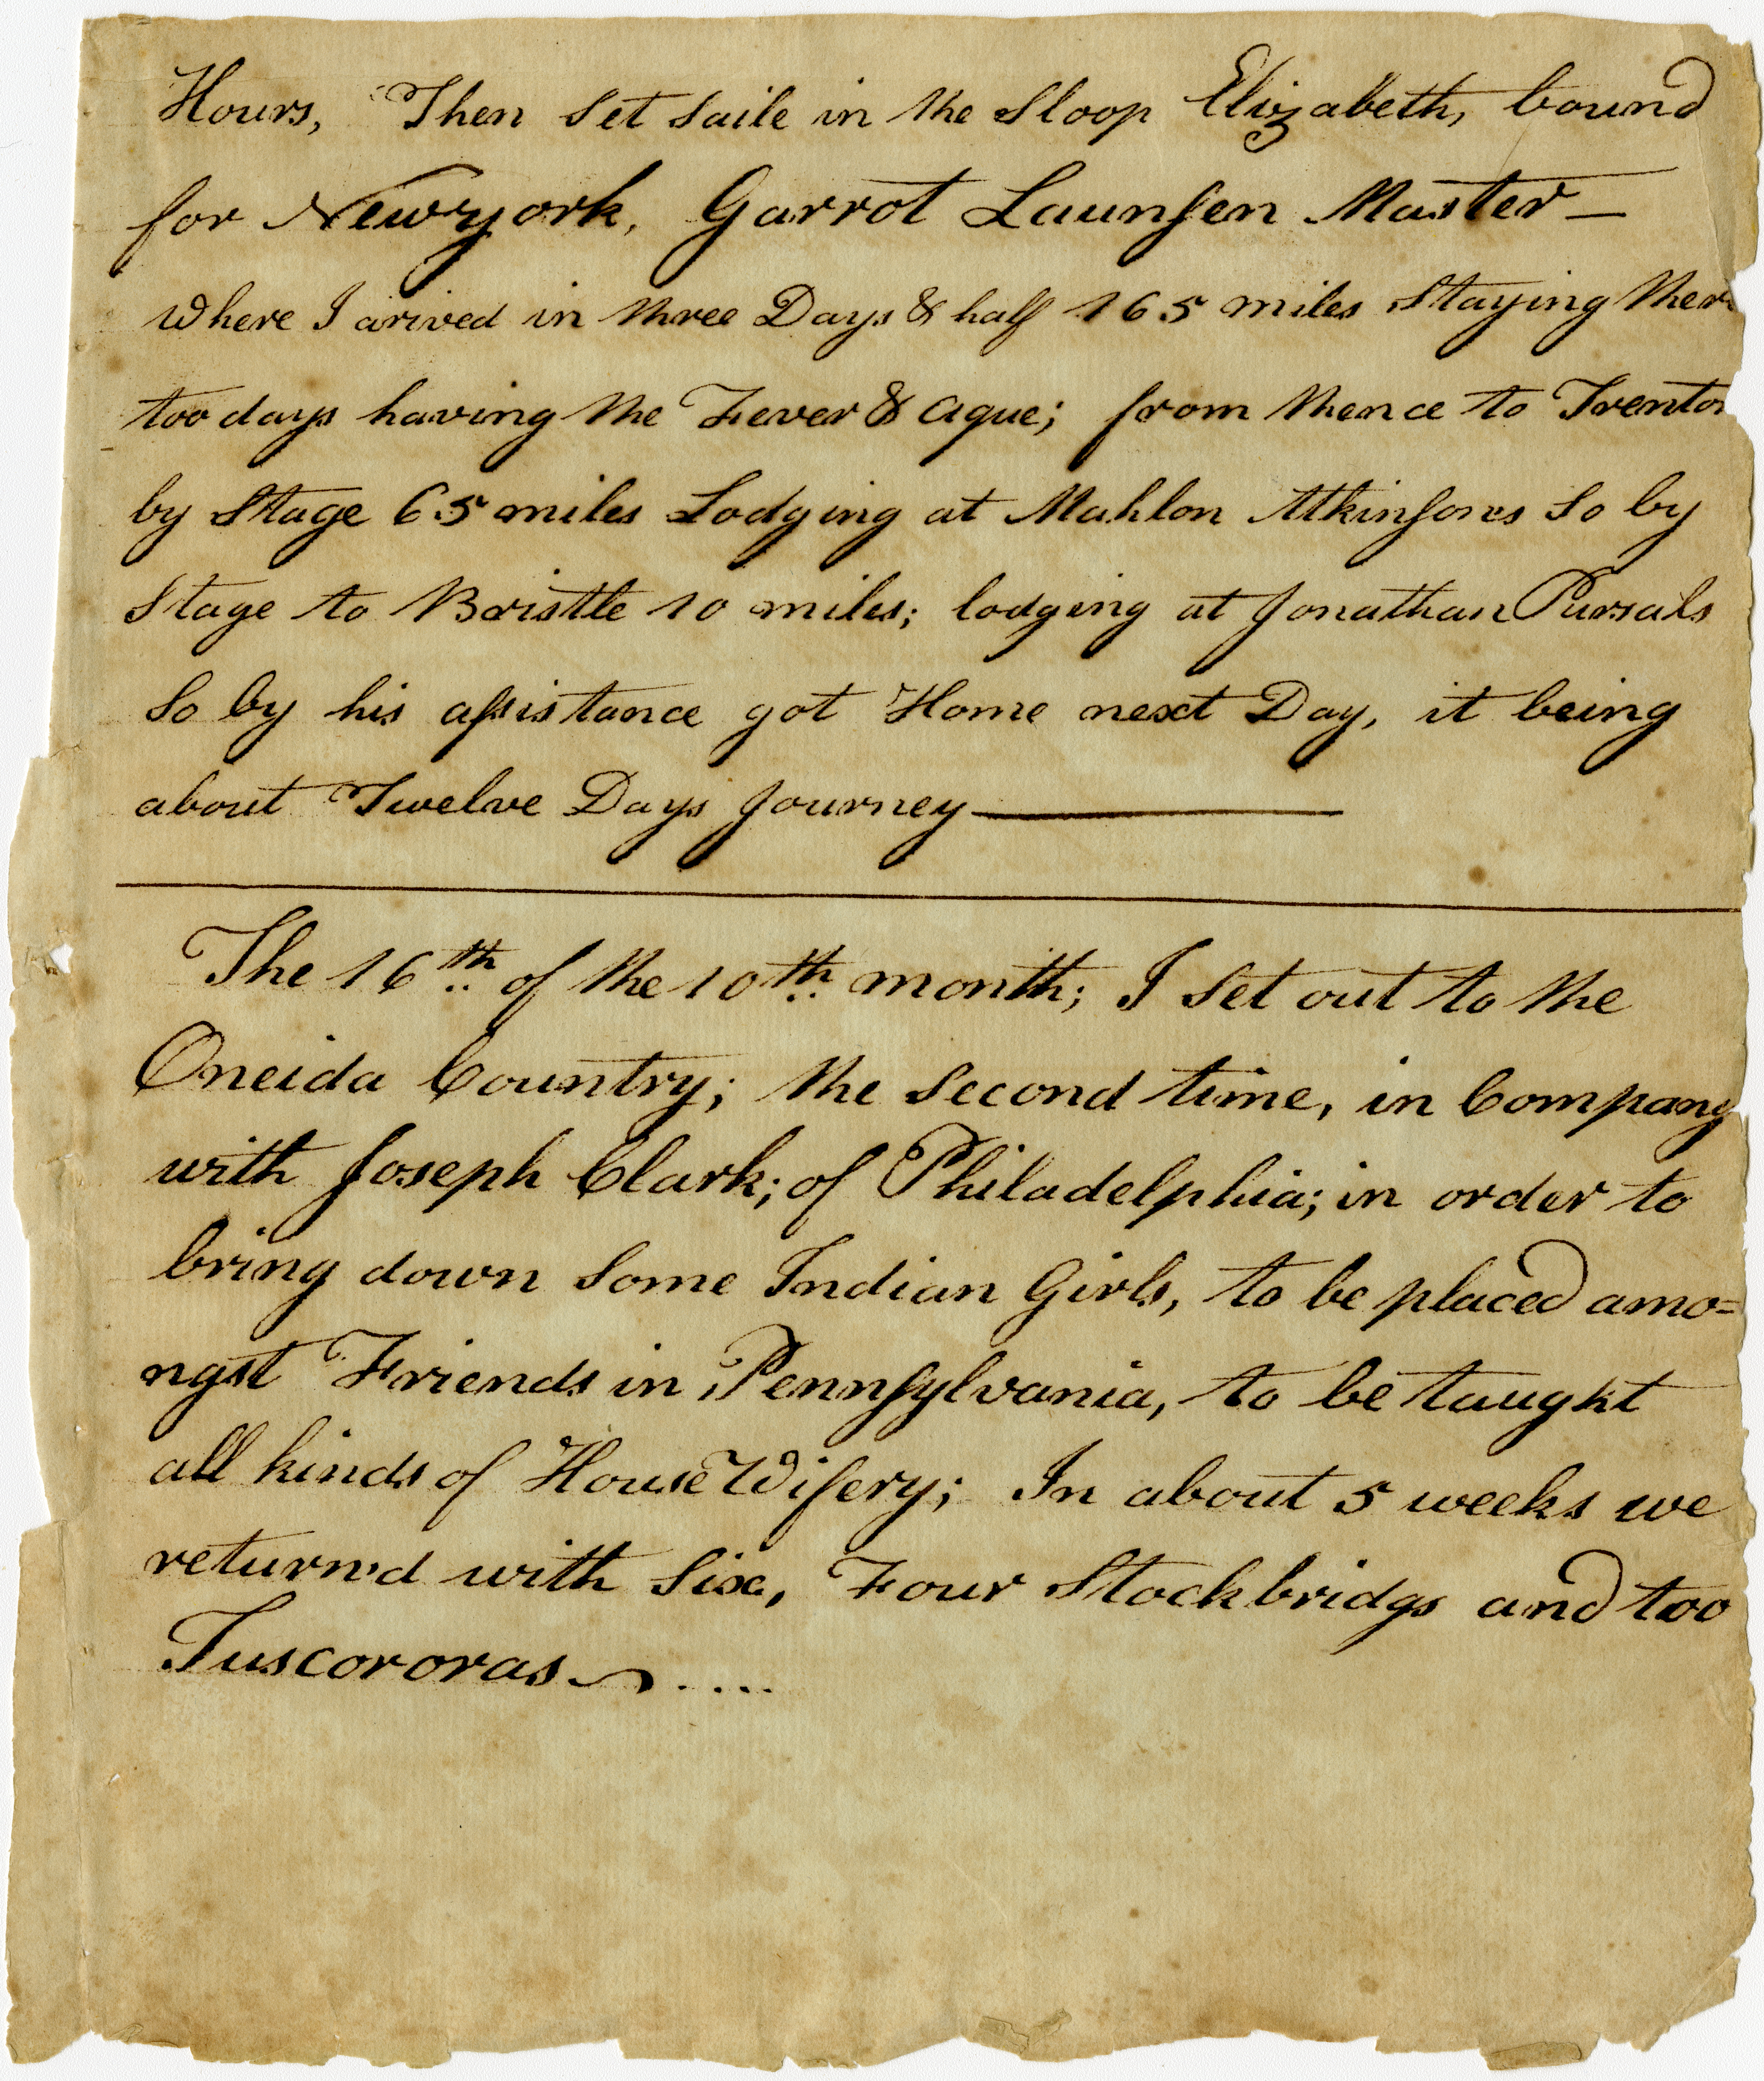 Hours, Then set saile in the Sloop Elizabeth, bound
for Newyork, Garrot Launsen Master —
where I arived in three Days & half 165 miles Staying ther
too days having the Fever & Ague; from thence to Trenton
by Stage 65 miles Lodging at Mahlon Atkinsones So by
Stage to Bristle 10 miles; lodging at Jonathan Pursals
So by his assistance got Home next Day, it being
about Twelve Days Journey —
The 16th of the 10th month; I Set out to the
Oneida Country; the Second time, in Company
with Joseph Clark; of Philadelphia; in order to
bring down Some Indian Girls, to be placed amo=
ngst Friends in Pennsylvania, to be taught
all kinds of House Wifery; In about 5 weeks we
return'd with Six, Four Stockbridgs and too
Tuscororas ....